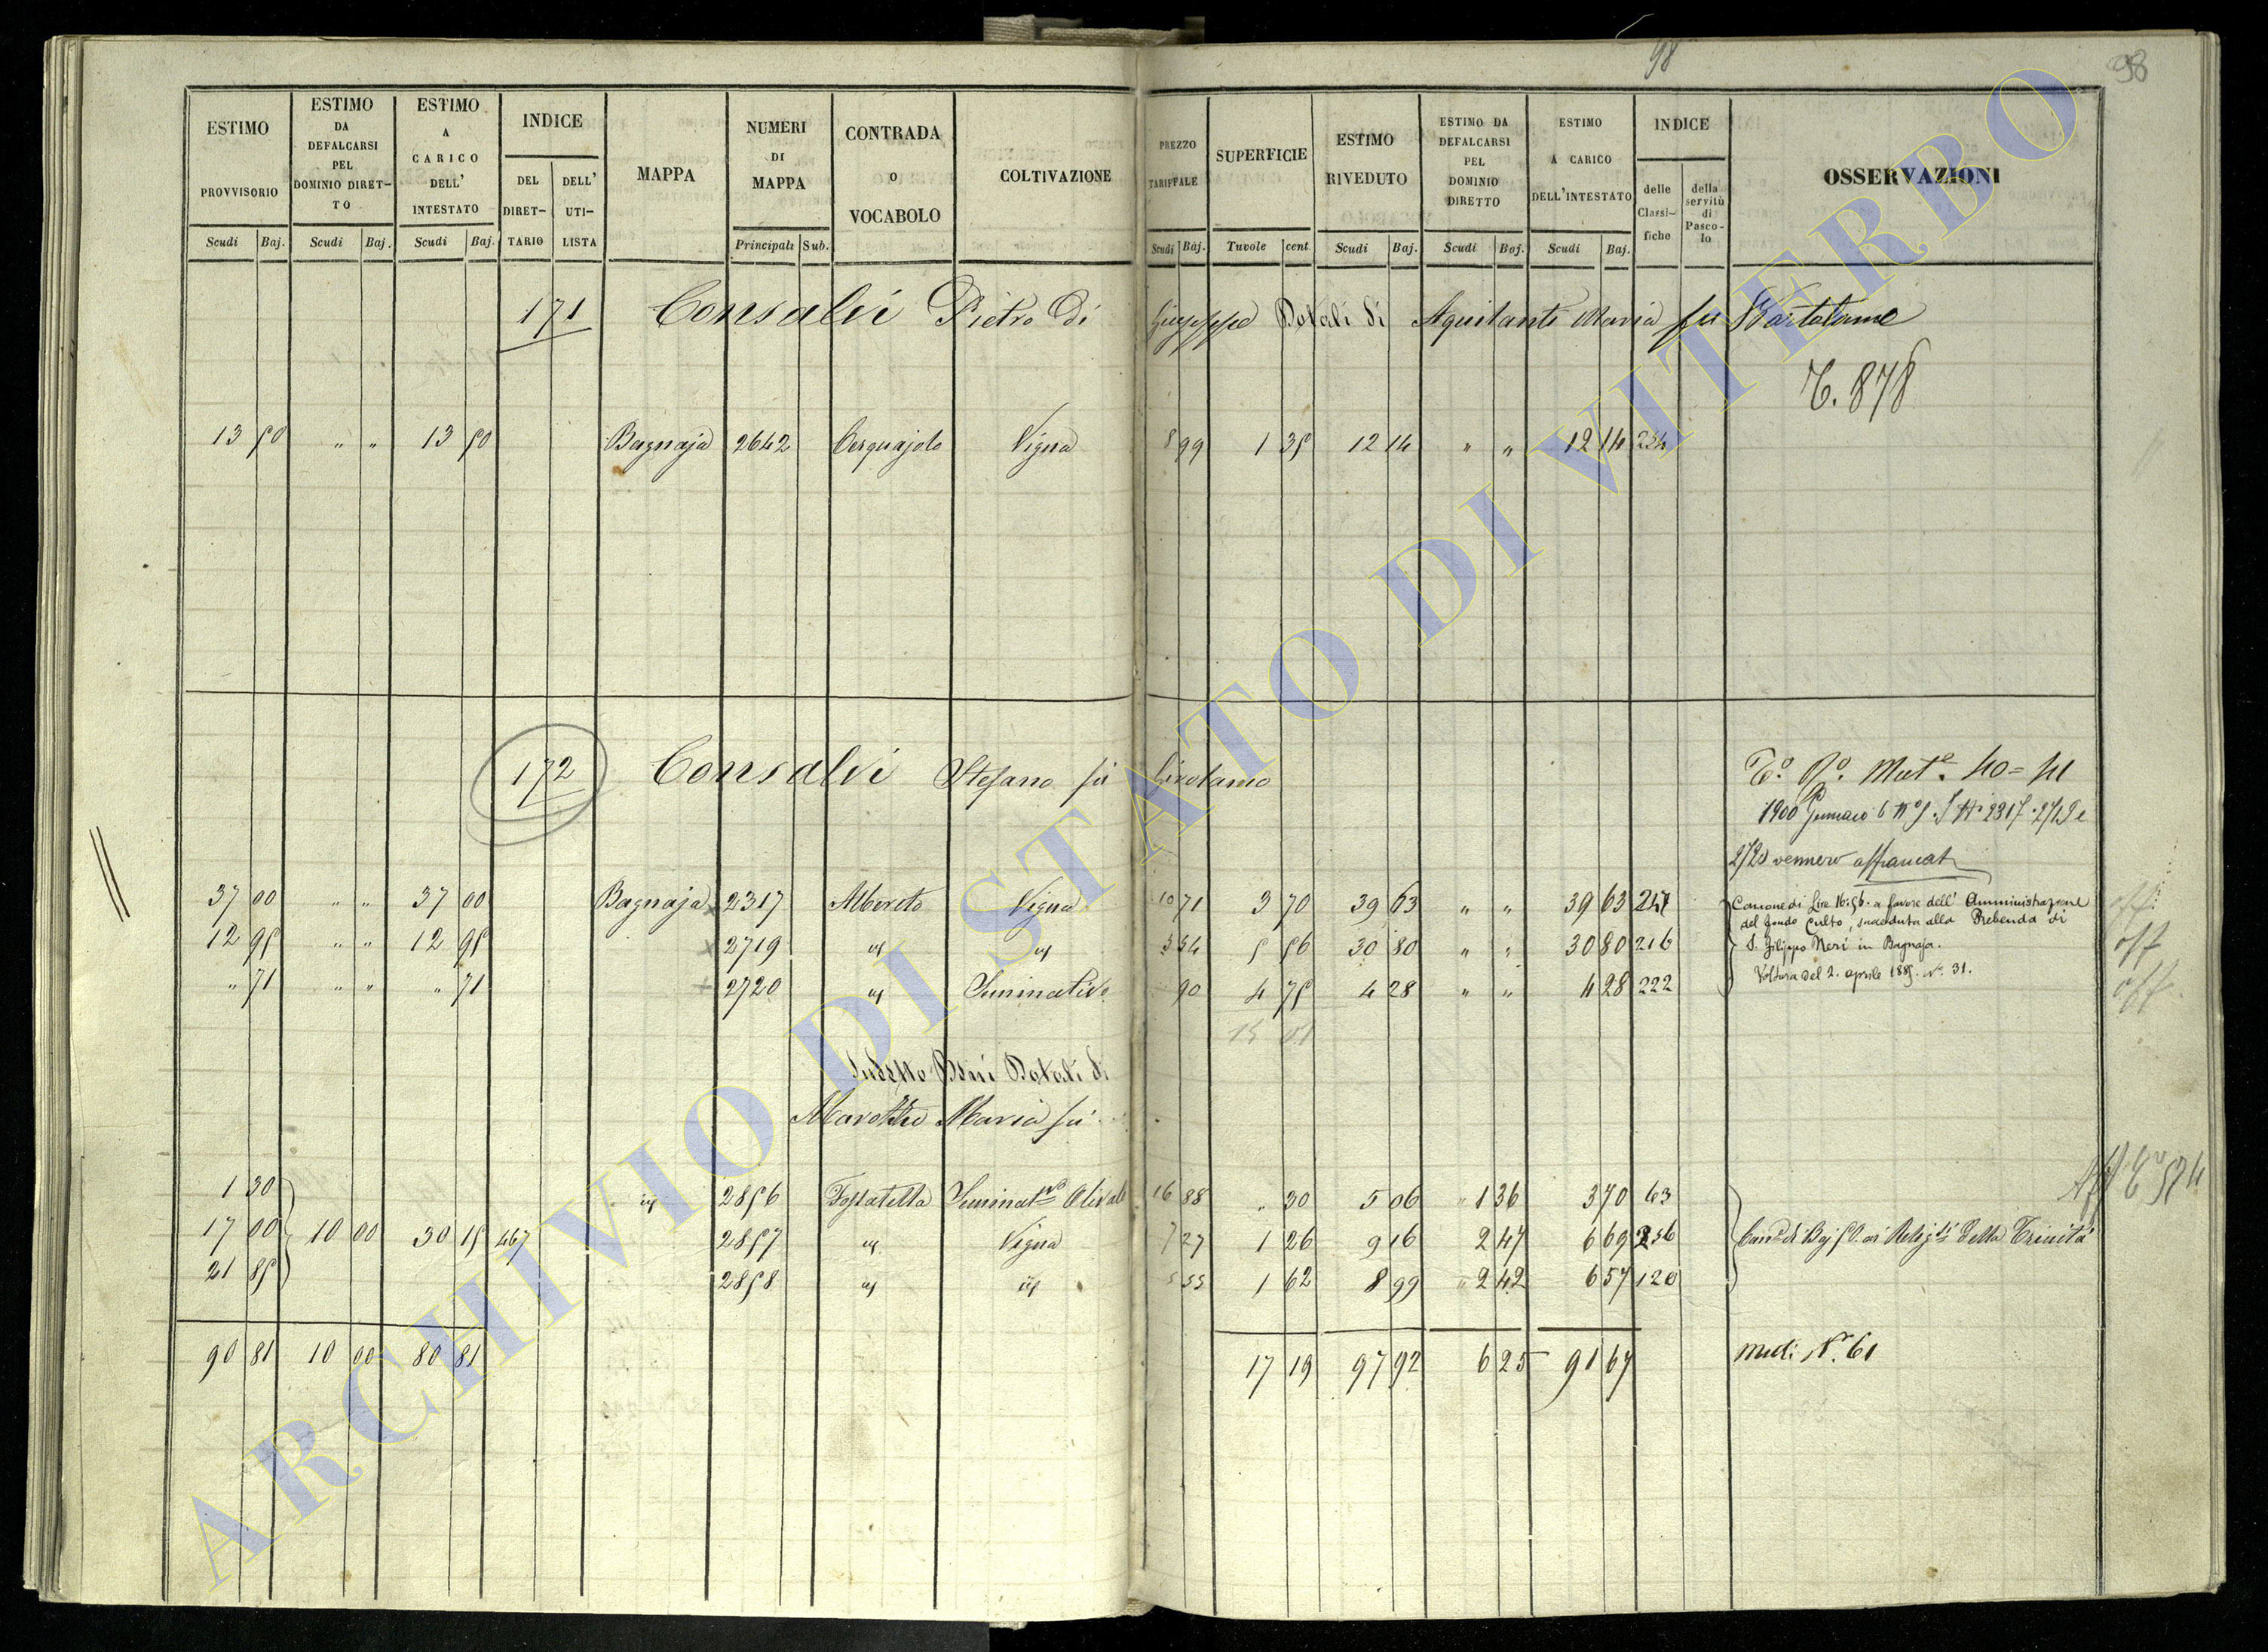 98
98
ESTIMO PROVVISORIO
ESTIMO DA DEFALCARSI PEL DOMINIO DIRETTO
ESTIMO A CARICO DELL' INTESTATO
INDICE
DEL DIRETTARIO
DELL' UTILISTA
MAPPA
NUMERI DI MAPPA
CONTRADA O VOCABOLO
COLTIVAZIONE
PREZZO TARIFFALE
SUPERFICIE
ESTIMO RIVEDUTO
ESTIMO DA DEFALCARSI PEL DOMINIO DIRETTO
ESTIMO A CARICO DELL'INTESTATO
INDICE
delle Classifiche
della servitù di Pascolo
OSSERVAZIONI
Scudi Baj. Scudi Baj. Scudi Baj. Principali Sub. Scudi Baj. Tavole cent. Scudi Baj. Scudi Baj. Scudi Baj.
171 Consalvi Pietro di Giuseppe Dotali di Aquilanti Maria fu Bartolomeo
T. 878
13 50 " " 13 50 Bagnaja 2642 Cerquajolo Vigna 8 99 1 35 12 14 " " 12 14 234
172 Consalvi Stefano fu Girolamo
40 = 41
1900 Gennaio 6
2720 vennero affrancati
37 00 " " 37 00 Bagnaja 2317 Alboreto Vigna 10 71 3 70 39 63 " " 39 63 247
12 95 " " 12 95 2719 " " 5 54 5 56 30 80 " " 30 80 216
" 71 " " " 71 2720 " Seminativo 90 4 75 4 28 " " 4 28 222
Canone di Lire 16:56. a favore dell' Amministrazione
del fondo Culto, succeduta alla Prebenda di
S. Filippo Neri in Bagnaja.
Voltura del 2. aprile 1885. N. 31.
off
off
off
15 01
Sudetto Beni Dotali di
Maria fu
1 30 2856 Fossatella Seminat.vo Olivato 16 88 " 30 5 06 " 1 36 3 70 63
17 00 10 00 30 15 467 2857 " Vigna 7 27 1 26 9 16 2 47 6 69 256
21 85 2858 " " 5 55 1 62 8 99 2 42 6 57 120
Can.e di Baj 50. ai Relig.si della Trinità
90 81 10 00 80 81 17 19 97 92 6 25 91 67
Vedi N. 61
ARCHIVIO DI STATO DI VITERBO